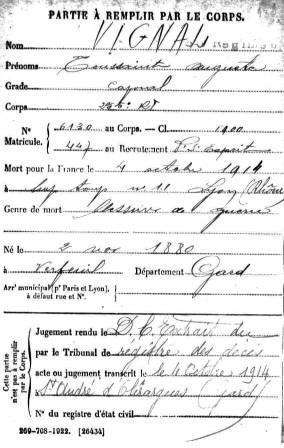 PARTIE À REMPLIR PAR LE CORPS.
Nom VIGNAL
Prénoms Toussaint Auguste
Grade Caporal
Corps
N° 6130 au Corps. — Cl. 1900
Matricule. 447 au Recrutement P. St Esprit
Mort pour la France le 4 octobre 1914
à hop Temp n. 11 Lyon (Rhône)
Genre de mort blessures de guerre
Né le 2 nov 1880
à Verfeuil Département Gard
Arr' municipal (p' Paris et Lyon),
à défaut rue et N°.
Cette partie
n'est pas à remplir
par le Corps.
Jugement rendu le D. C. Extrait du
par le Tribunal de registre des décès
acte ou jugement transcrit le 4 Octobre 1914
St André d'Olérargues (Gard)
N° du registre d'état civil
269-708-1922. [26434]